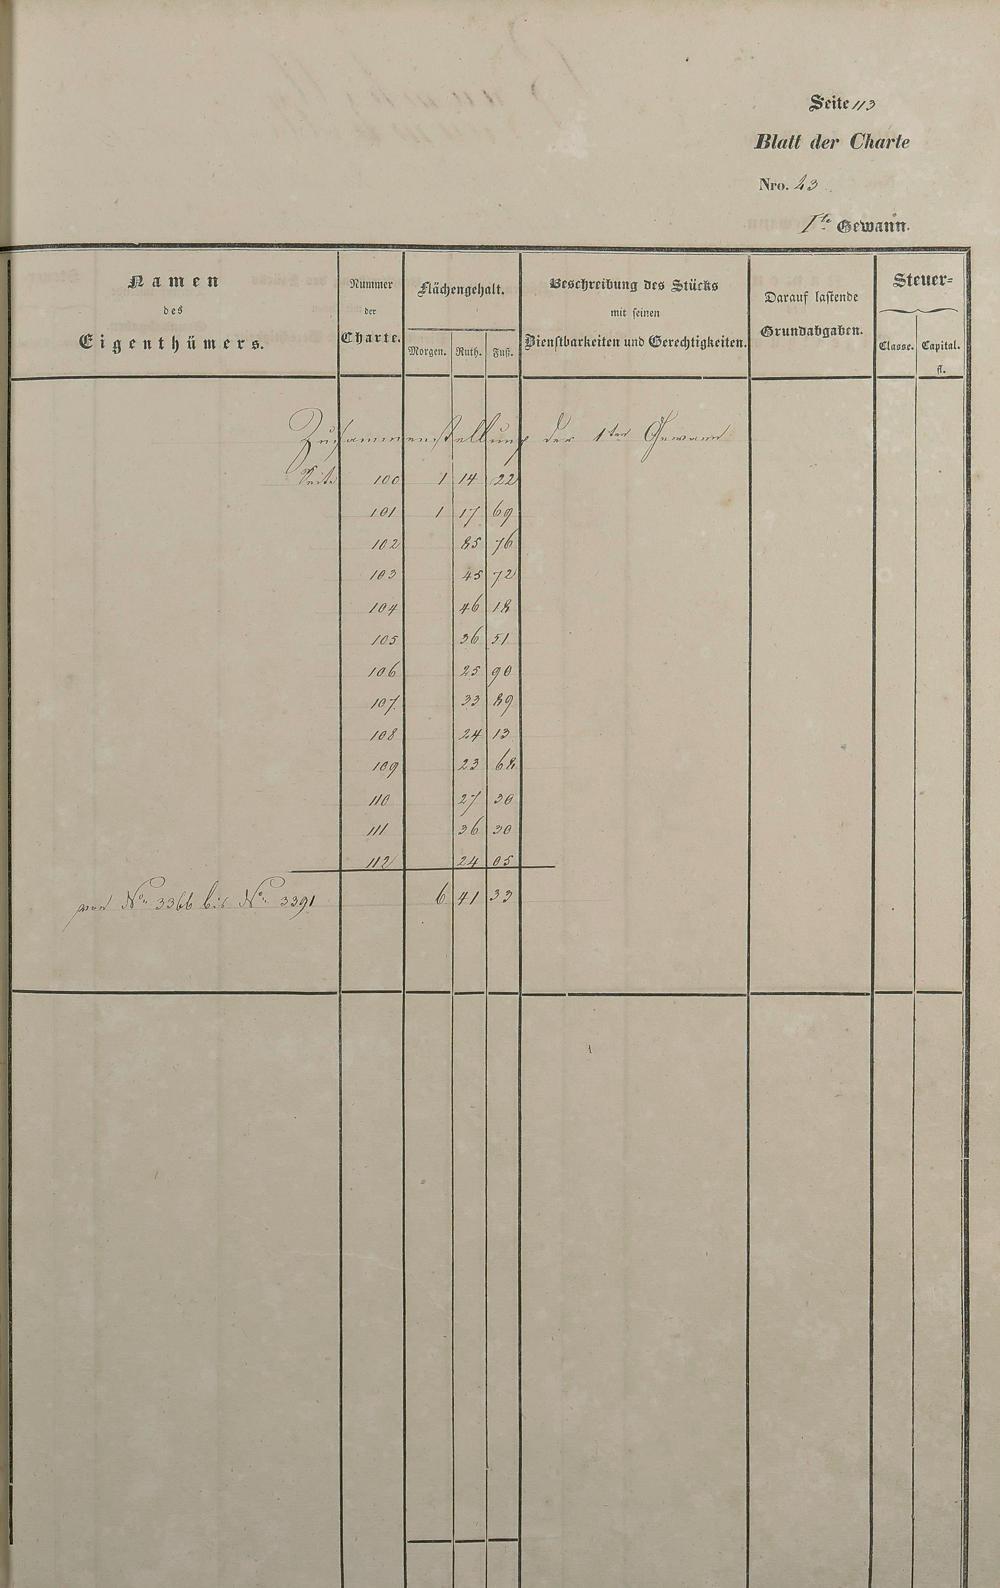 Seite 113
Blatt der Charte
Nro. 23
1te Gewann.
Namen des Eigenthümers.
Nummer der Charte.
Flächengehalt.
Morgen. Ruth. Fuß.
Beschreibung des Stücks mit seinen Dienstbarkeiten und Gerechtigkeiten.
Darauf lastende Grundabgaben.
Steuer-
Classe. Capital. fl.
Zusammenstellung der 1ten Gewann
Seite 100 1 14 22
101 1 17 69
102 85 76
103 45 72
104 46 18
105 36 51
106 25 90
107 33 89
108 24 13
109 23 68
110 27 30
111 36 30
112 24 05
von No. 3366 bis No. 3391 6 41 33